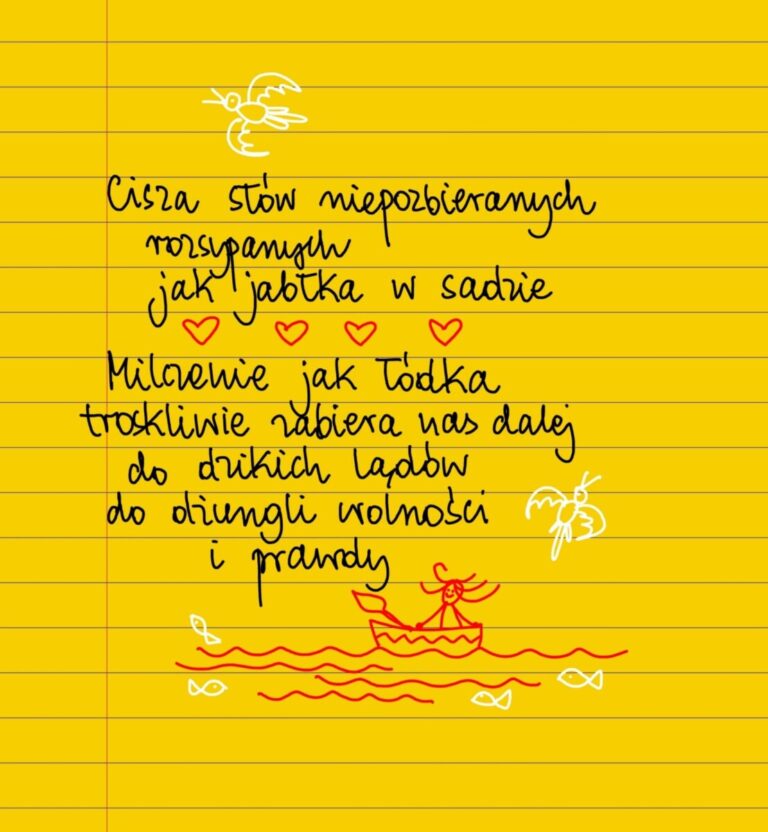 Cisza słów niepozbieranych
rozsypanych
jak jabłka w sadzie
Milczenie jak łódka
troskliwie zabiera nas dalej
do dzikich lądów
do dżungli wolności
i prawdy